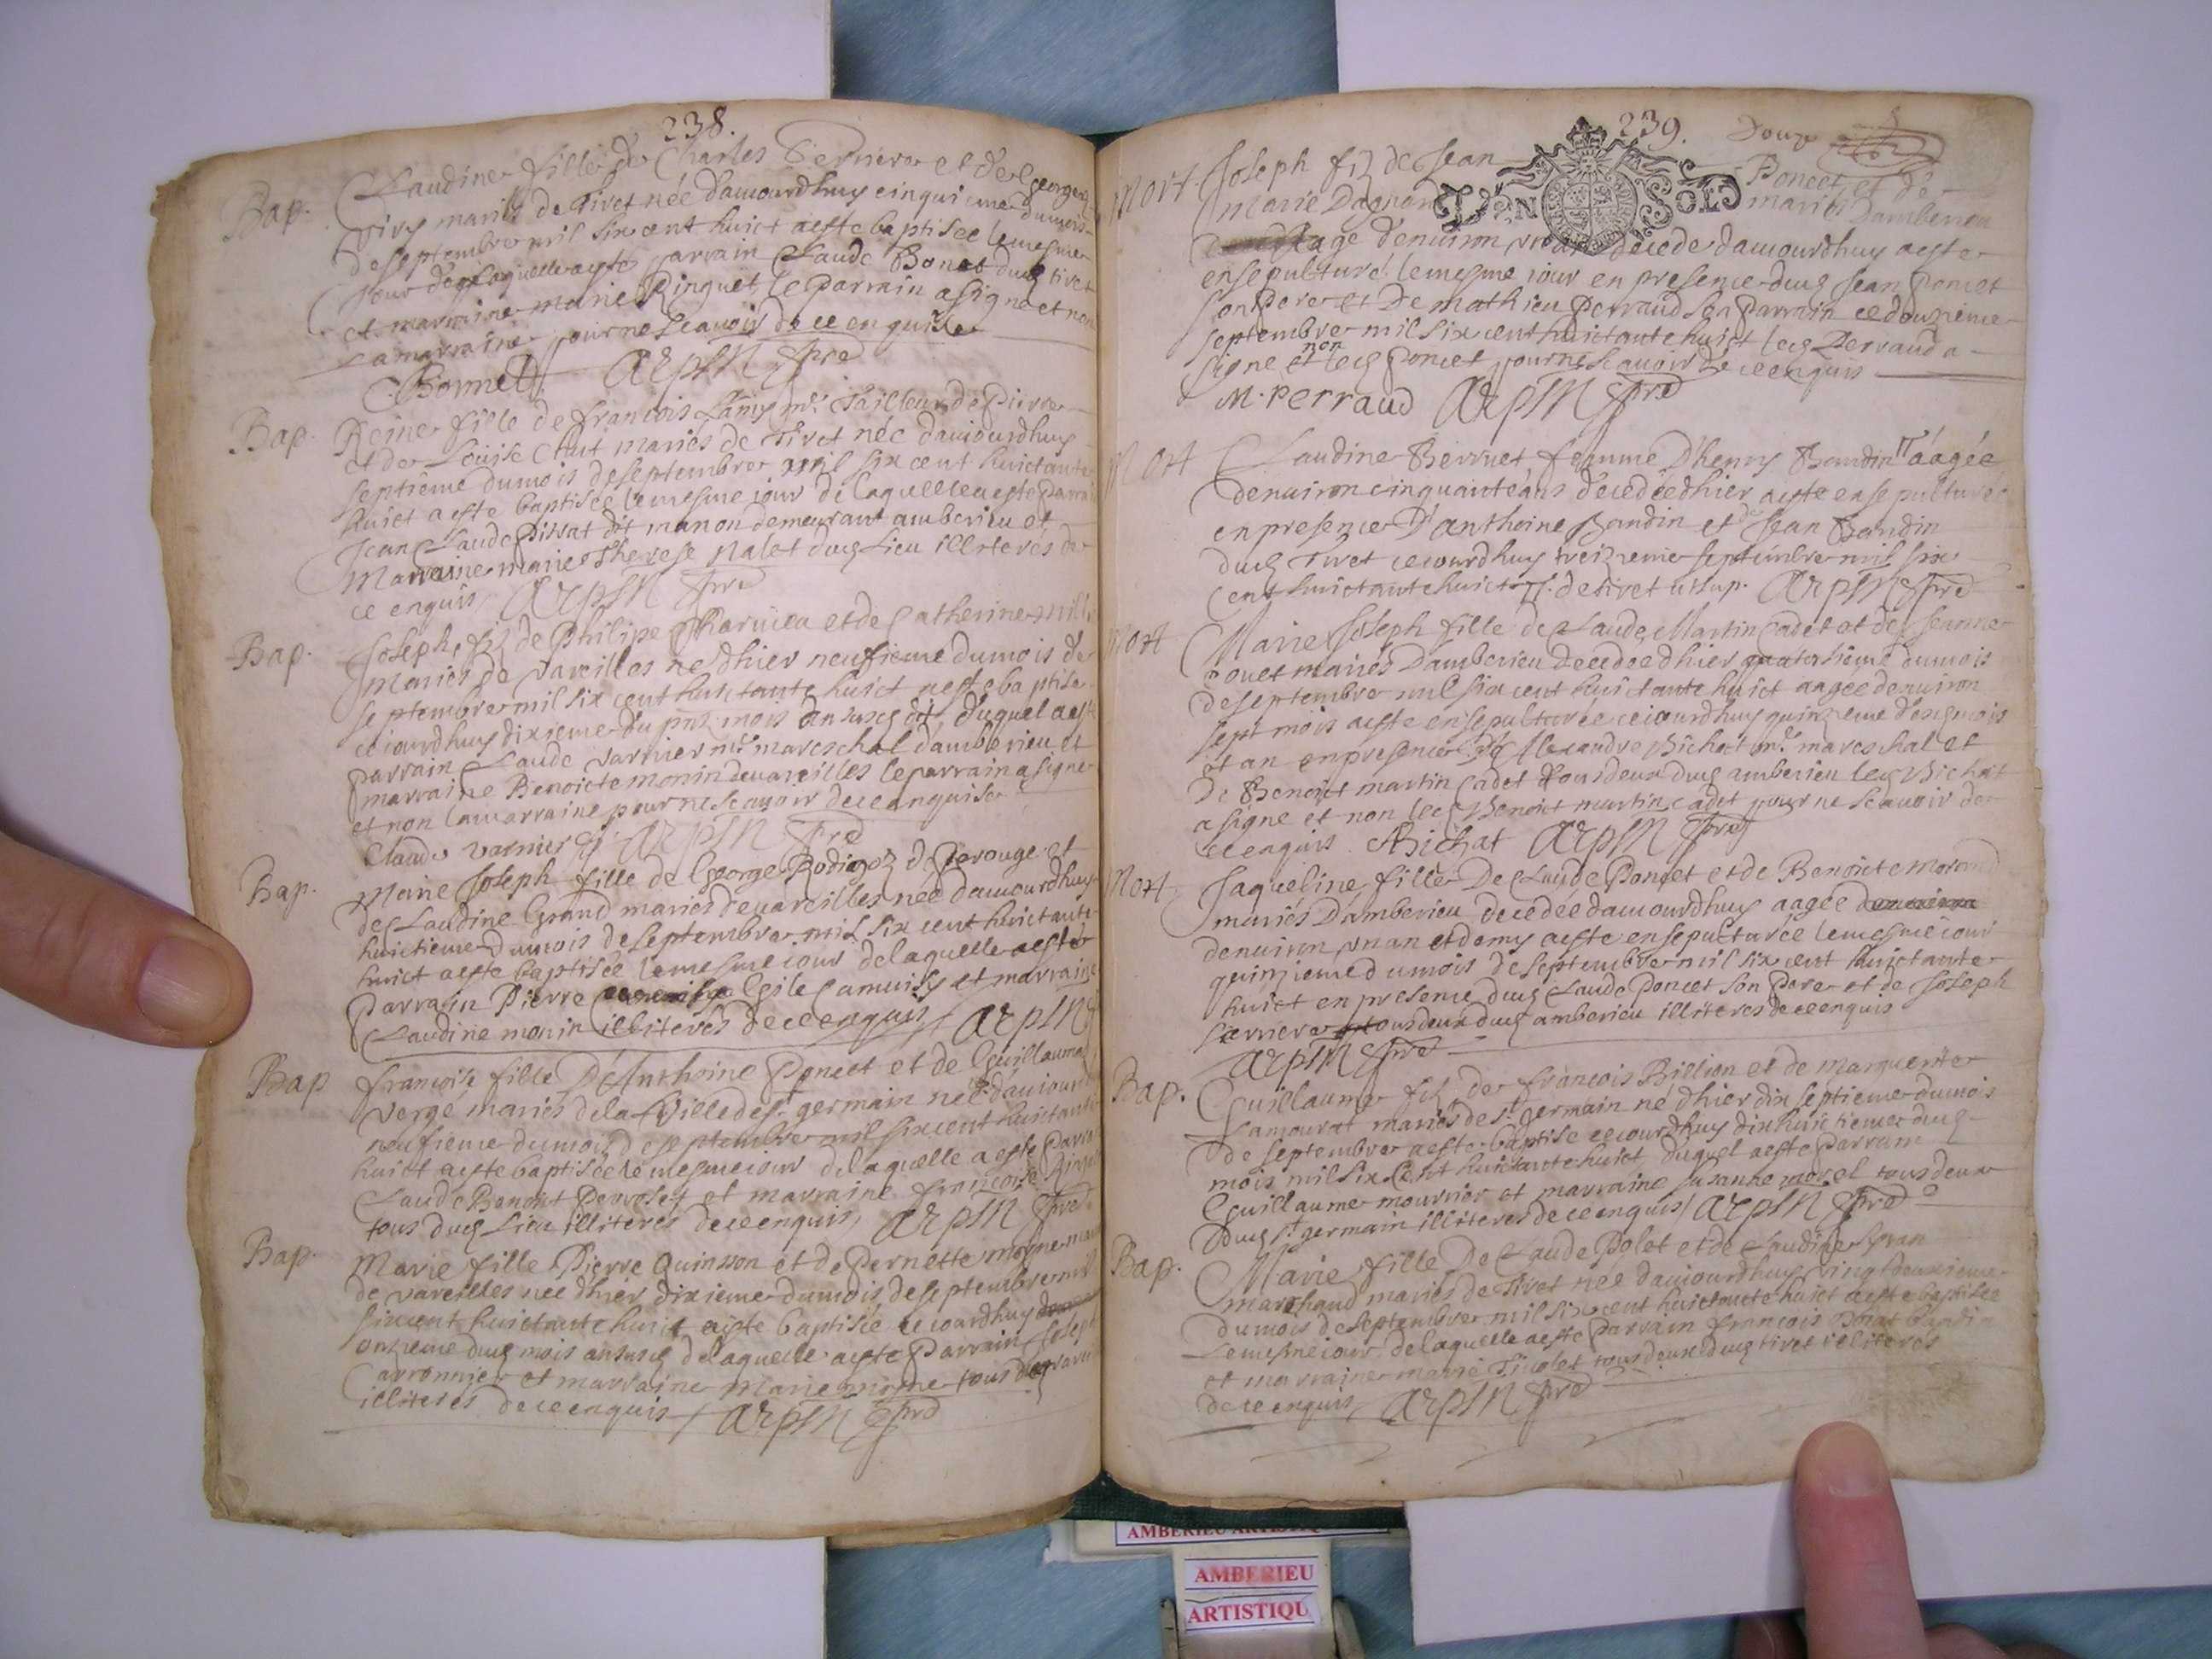 238.
Bap. Claudine fille de Charles et de George
mariés de Tivet née daujourdhuy cinquieme du mois
de septembre mil six cent huict a esté baptisée le mesme
jour de laquelle a esté parrain Claude Bonet dud tivet
et marraine marie Pinguet le parrain a signé et non
la marraine pour ne scavoir de ce enquise
C. Bonnet ARPIN
Bap. Reine fille de francois Lamy mr. Tailleur de Pierre
et de Loüise Chut mariés de Tivet née daujourdhuy
septieme du mois de septembre mil six cent huictante
huict a esté baptisée le mesme jour de laquelle a esté parrain
Jean Claude Pissat dit manon demeurant amberieu et
marraine marie Therese nalet dud Lieu illiteres de
ce enquis ARPIN
Bap. Joseph fiz de Philipe et de Catherine
mariés de Vareilles né dhier neufieme du mois de
septembre mil six cent huictante huict a esté baptisé
ce jourdhuy dixieme du mois duquel a esté
parrain Claude Varnier mr. mareschal damberieu et
marraine Benoicte monin de vareilles le parrain a signé
et non la marraine pour ne scavoir de ce enquise
Claude varnier ARPIN
Bap. Marie Joseph fille de George de Perouge et
de Claudine Grand mariés de vareilles née daujourdhuy
huictieme du mois de septembre mil six cent huictante
huict a esté baptisée le mesme jour de laquelle a esté
Parrain Pierre Gile et marraine
Claudine monin illiteres de ce enquis ARPIN
Bap francoise fille D'Anthoine Poncet et de Guillauma
Vergé mariés de la Ville de st germain née daujourdhuy
neufieme du mois de septembre mil six cent huictante
huict a esté baptisée le mesme jour de laquelle a esté Parrain
Claude Benoict Perroset et marraine francoise
tous dud Lieu illiteres de ce enquis ARPIN
Bap Marie fille Pierre Quinson et de Pernette moyne
de vareilles née dhier dixieme du mois de septembre mil
six cent huictante huict a esté baptisée ce jourdhuy
onzieme dud mois an susd de laquelle a esté Parrain Joseph
Carronnier et marraine Marie moyne tous
illiteres de ce enquis ARPIN
239. Douze
VN SOL
Mort Joseph fiz de Jean Poncet et de
Marie Dagnan mariés Damberieu
agé denuiron decede daujourdhuy a esté
ensepulturé le mesme jour en presence dud Jean Poncet
son Pere et De mathieu Perraud son Parrain ce douzieme
septembre mil six cent huictante huict led Perraud a
signé et non led Poncet pour ne scavoir de ce enquis
M. Perraud ARPIN
Mort Claudine Berruet femme D'henry Baudin aágée
denuiron cinquante ans decedée dhier a esté ensepulturée
en presence D'anthoine Baudin et de Jean Baudin
dud Tivet ce jourdhuy treizieme septembre mil six
cent huictante huict de tivet ARPIN
Mort Marie Joseph fille de Claude Martin Cadet et de Jeanne
mariés Damberieu decedée dhier quatorzieme du mois
de septembre mil six cent huictante huict aagée denuiron
sept mois a esté ensepulturée ce jourdhuy quinzieme desd mois
et an en presence de Alexandre Bichat mr. mareschal et
De Benoict martin Cadet tous deux dud amberieu led Bichat
a signé et non led Benoict martin cadet pour ne scavoir de
ce enquis Bichat ARPIN
Mort Jaqueline fille De Claude Poncet et de Benoicte Morand
mariés Damberieu decedée daujourdhuy aagée
denuiron vn an et demy a esté ensepulturée le mesme jour
quinzieme du mois de septembre mil six cent huictante
huict en presence dud Claude Poncet son Pere et de Joseph
tous deux dud amberieu illiteres de ce enquis
ARPIN
Bap. Guillaume fiz de francois Billion et de Marguerite
Lamourat mariés de st germain né dhier dix septieme du mois
de septembre a esté baptisé ce jourdhuy dixhuictieme dud
mois mil six Cent huictante huict duquel a esté Parrain
Guillaume mournier et marraine susanne morel tous deux
Dud st germain illiteres de ce enquis ARPIN
Bap. Marie fille De Claude Polet et de Claudine
marchand mariés de Tivet née daujourdhuy vingt deuxieme
du mois de septembre mil six cent huictante huict a esté baptisée
le mesme jour de laquelle a esté Parrain francois
et marraine marie Tivolet tous deux dud tivet illiteres
de ce enquis ARPIN
AMBERIEU
AMBERIEU
ARTISTIQU